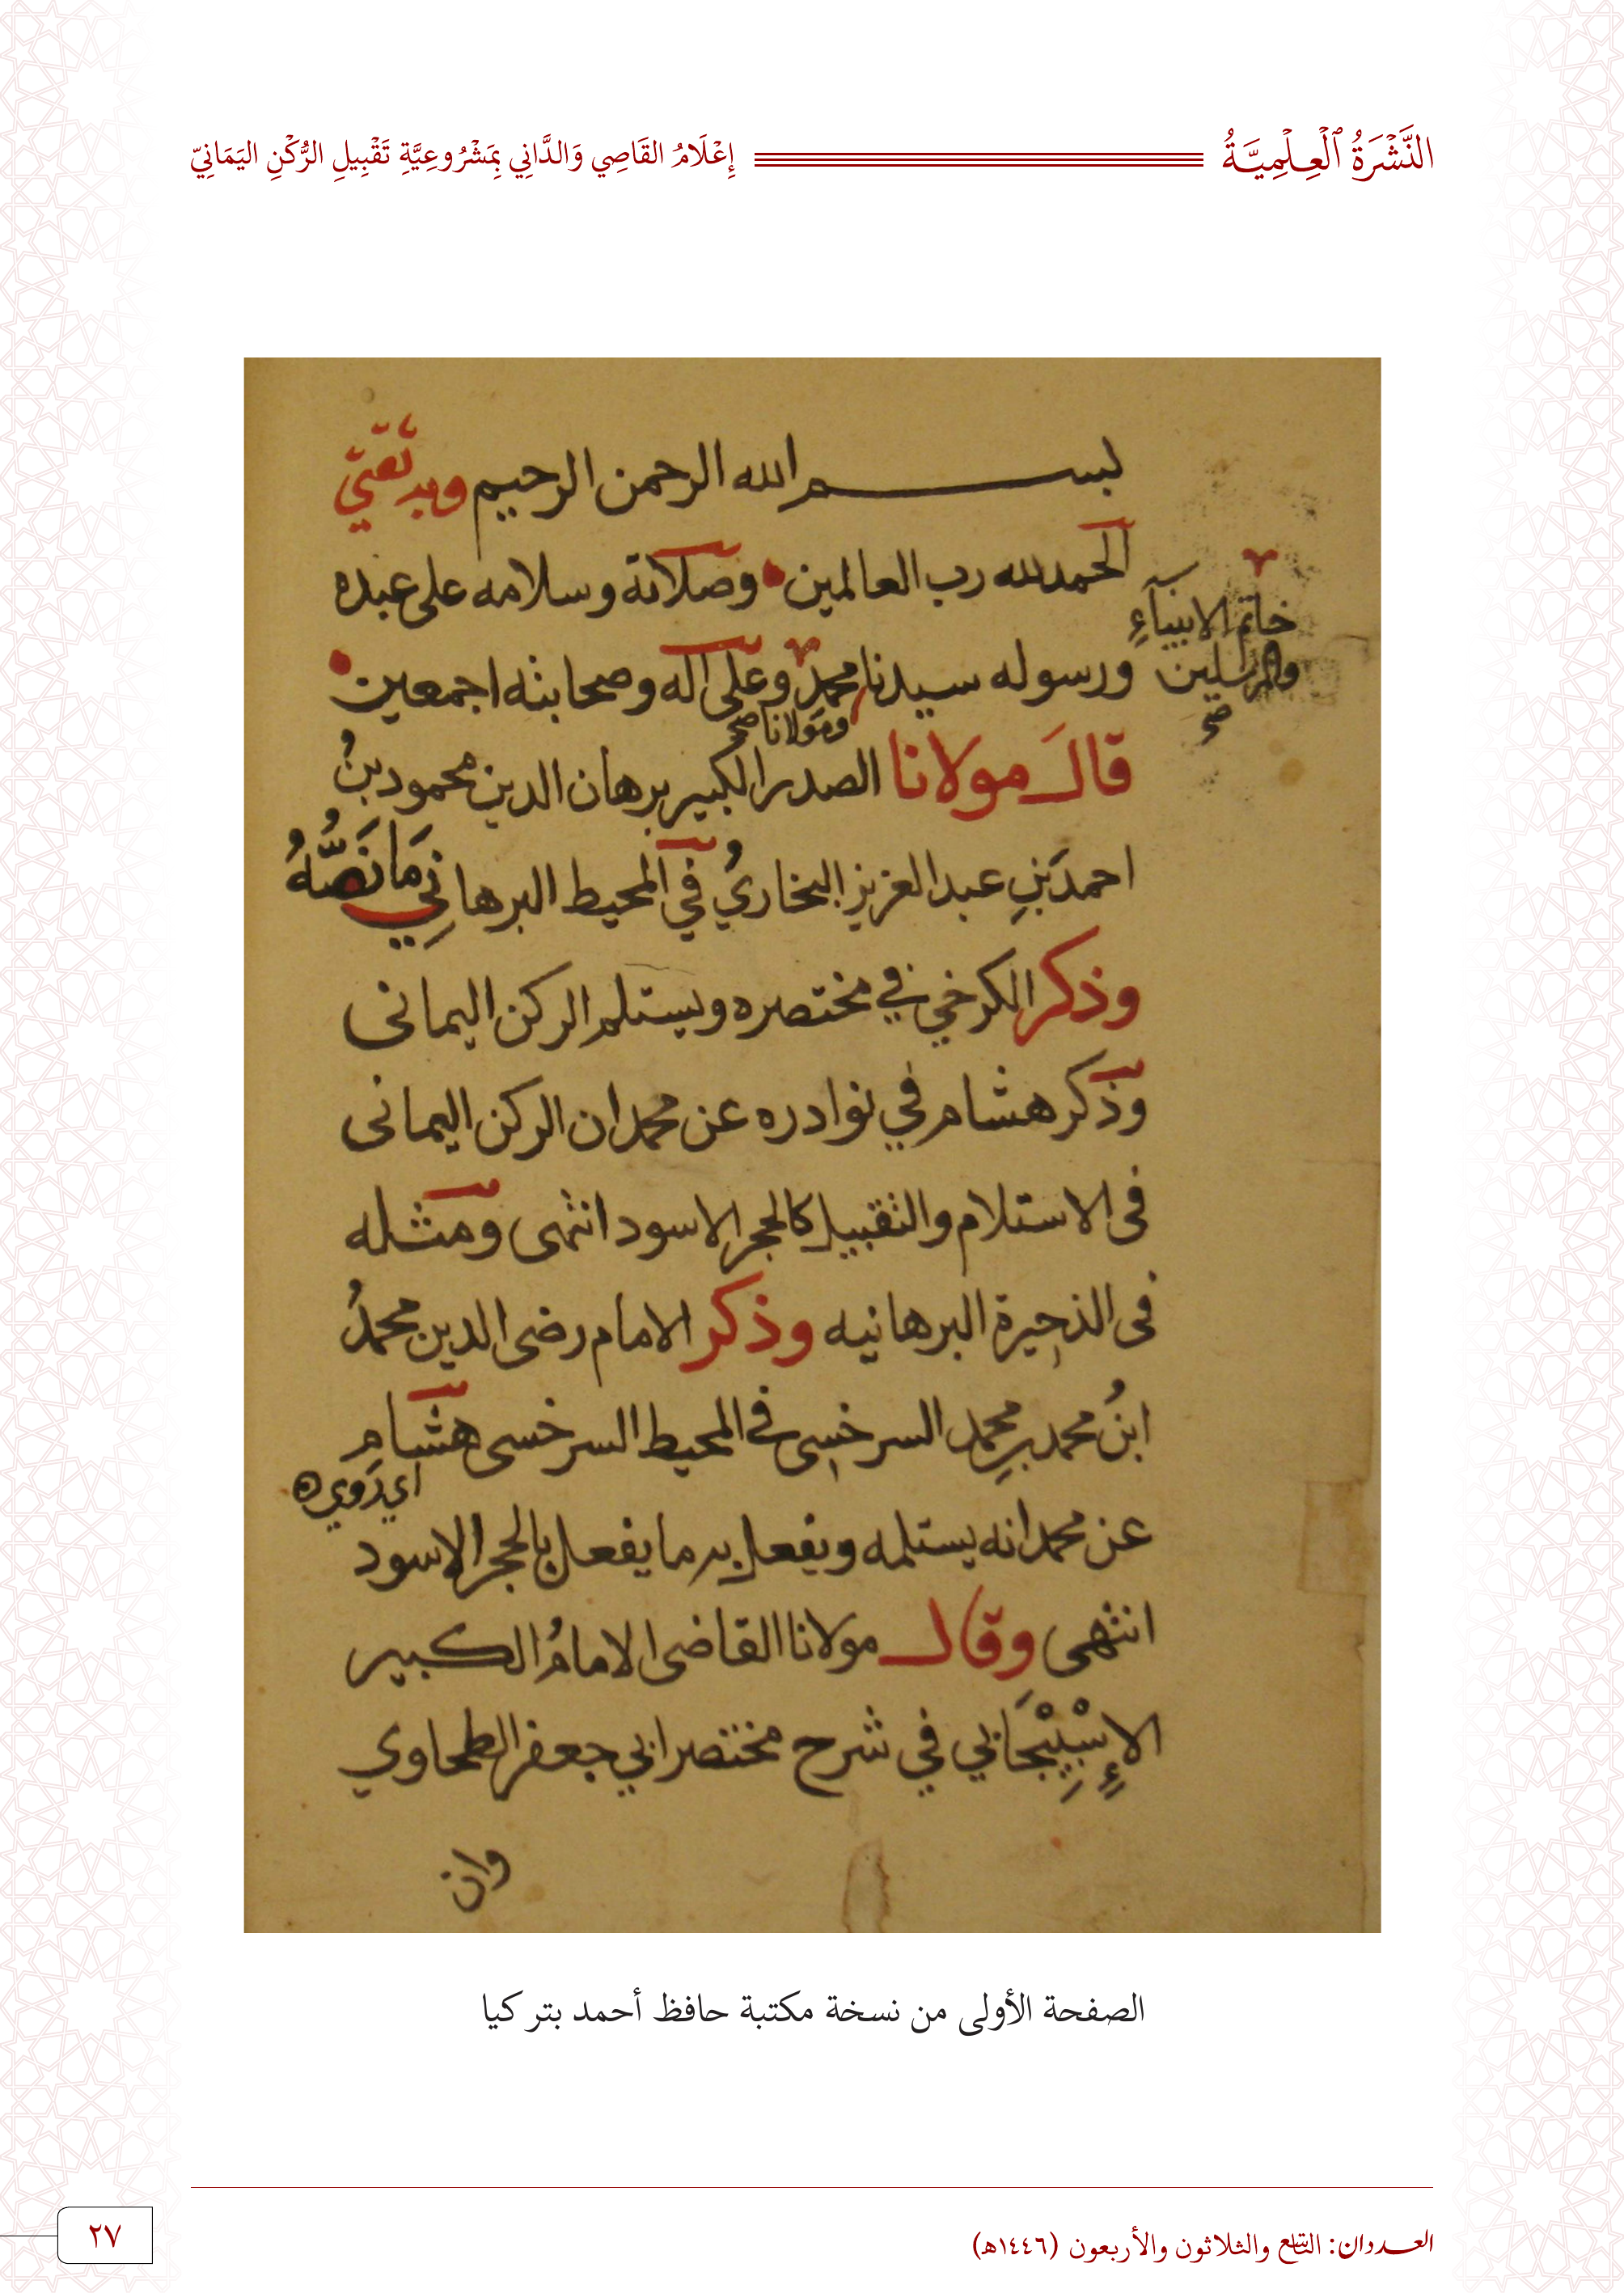 النَّشْرَةُ ٱلْعِلْمِيَّةُ
إِعْلَامُ القَاصِي وَالدَّانِي بِمَشْرُوعِيَّةِ تَقْبِيلِ الرُّكْنِ اليَمَانِيّ
بسم الله الرحمن الرحيم وبه ثقتي
الحمد لله رب العالمين وصلاته وسلامه على عبده
خاتم الانبياءِ
والمرسلين
صح
ورسوله سيدنا محمد وعلى اله وصحابته اجمعين
ومولانا صح
قالَ مولانا الصدر الكبير برهان الدين محمود بنُ
احمدَ بنِ عبد العزيز البخاريُ في المحيط البرهانِي مَا نَصُّهُ
وذكر الكرخي في مختصره ويستلم الركن اليمانى
وذكر هشام في نوادره عن محمد ان الركن اليمانى
فى الاستلام والتقبيل كالحجر الاسود انتهى ومثله
فى الذخيرة البرهانيه وذكر الامام رضى الدين محمدُ
ابنُ محمد بنِ محمد السرخسى في المحيط السرخسى هشام
اي رَوي
عن محمد انه يستلمه ويفعل به ما يفعل بالحجر الاسود
انتهى وقال مولانا القاضى الامامُ الكبير
الإِسْبِيْجَابي في شرح مختصر ابي جعفر الطحاوي
وان
الصفحة الأولى من نسخة مكتبة حافظ أحمد بتركيا
العددان: التاسع والثلاثون والأربعون (١٤٤٦هـ)
٢٧